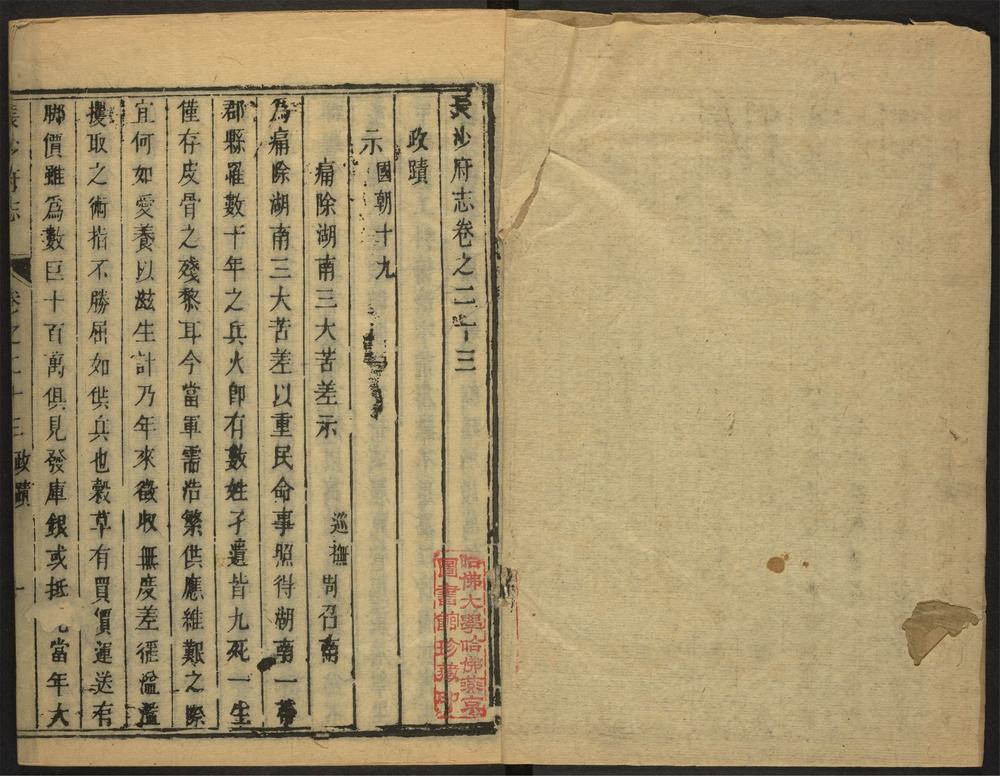 長沙府志卷之二十三
政蹟
國朝十九
示
痛除湖南三大苦差示
巡撫周召南
為痛除湖南三大苦差以重民命事照得湖南一帶
郡縣罹數十年之兵火即有數姓孑遺皆九死一生
僅存皮骨之殘黎耳今當軍需浩繁供應維艱之際
宜何如愛養以滋生計乃年來徵收無度差徭濫濫
攫取之術指不勝屈如供兵也穀草有買價運送有
脚價雖為數巨十百萬俱見發庫銀或抵當年大
長沙府志
卷之二十三
政蹟
一
哈佛大學哈佛燕京
圖書館珍藏印